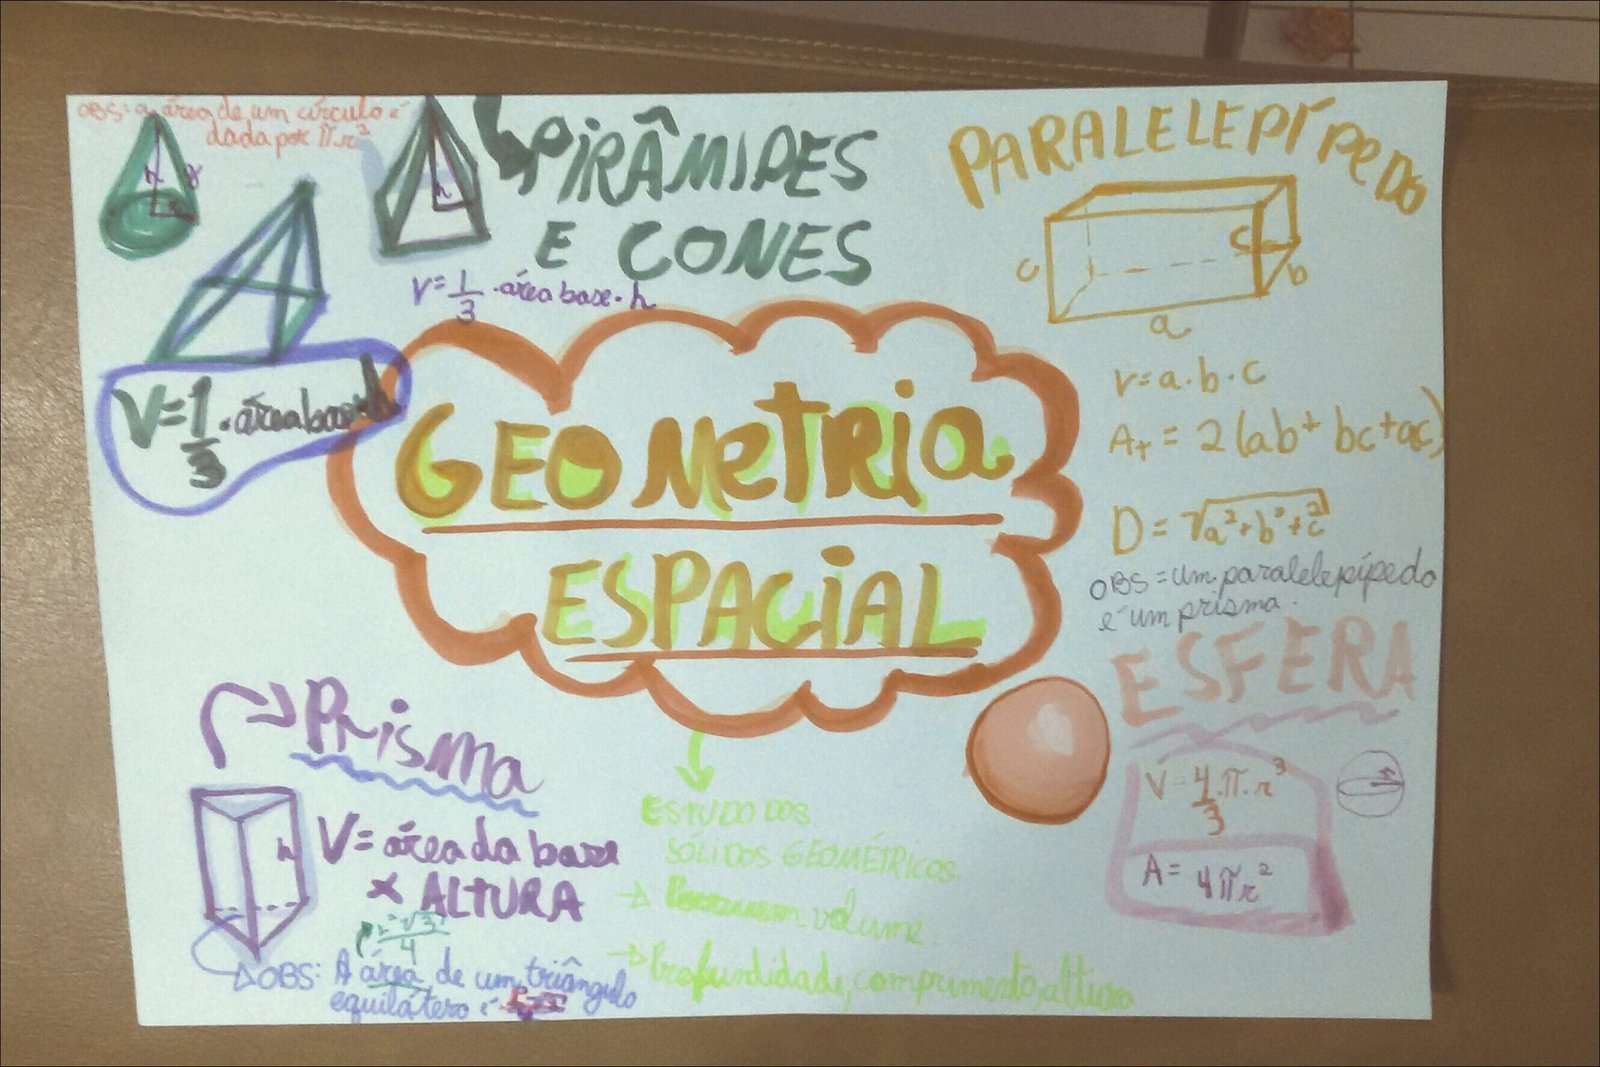 OBS: a área de um círculo é
dada por πr²
h
g
r
h
PIRÂMIDES
E CONES
V=1/3 · área base · h
V=1/3 · área base · h
PARALELEPÍPEDO
c
c
b
a
V=a·b·c
At = 2(ab+bc+ac)
D = √a²+b²+c²
OBS = um paralelepípedo
é um prisma.
GEOMETRIA
ESPACIAL
ESFERA
V=4/3·π·r³
r
A= 4πr²
Prisma
h
V= área da base
x ALTURA
l²√3/4
OBS: A área de um triângulo
equilátero é
ESTUDO DOS
SÓLIDOS GEOMÉTRICOS.
→ Possuem volume.
→ Profundidade, comprimento, altura